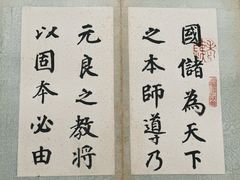 國儲為天下
之本師導乃
元良之教將
以固本必由